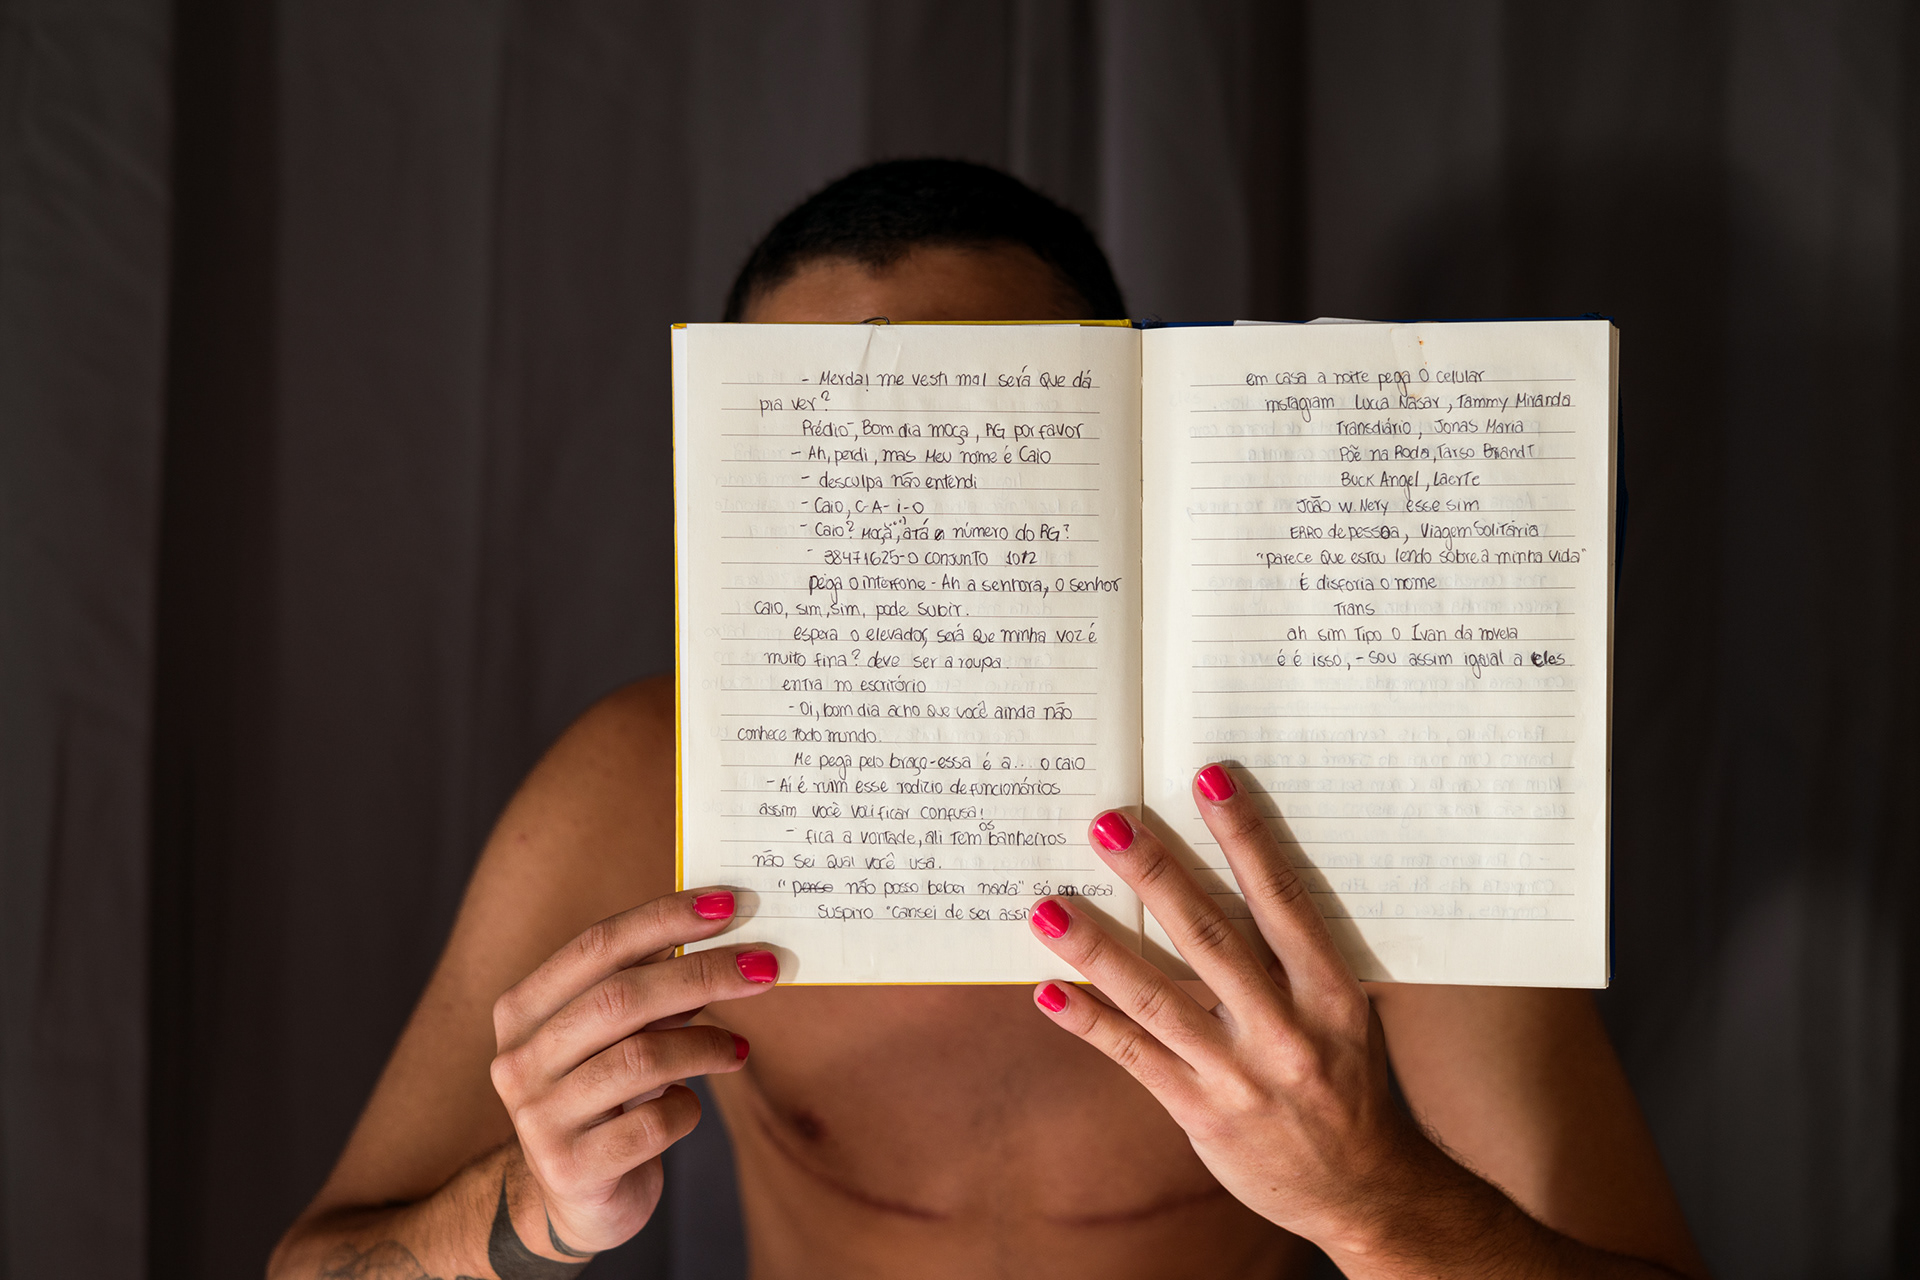 - Merda! me vesti mal será que dá
pra ver?
Prédio-, Bom dia moça, RG por favor
- Ah, perdi, mas meu nome é Caio
- desculpa não entendi
- Caio, C-A-I-O
- Caio? moça, atá o número do RG?
- 38471625-0 conjunto 1012
pega o interfone - Ah a senhora, o senhor
Caio, sim, sim, pode subir.
espera o elevador, será que minha voz é
muito fina? deve ser a roupa.
entra no escritório
- Oi, bom dia acho que você ainda não
conhece todo mundo.
Me pega pelo braço-essa é a... o Caio
- Aí é ruim esse rodizio de funcionários
assim você vai ficar confusa!
- fica a vontade, ali tem os banheiros
não sei qual você usa.
" não posso beber nada" só em casa
Suspiro "Cansei de ser
em casa a noite pega o celular
instagram Lucca Násar, Tammy Miranda
Transdiário, Jonas Maria
Põe na Roda, Tarso Brandt
Buck Angel, Laerte
João W. Nery esse sim
ERRO de pessoa, Viagem Solitária
"parece que estou lendo sobre a minha vida"
É disforia o nome
Trans
ah sim Tipo o Ivan da novela
é é isso, - sou assim igual a eles